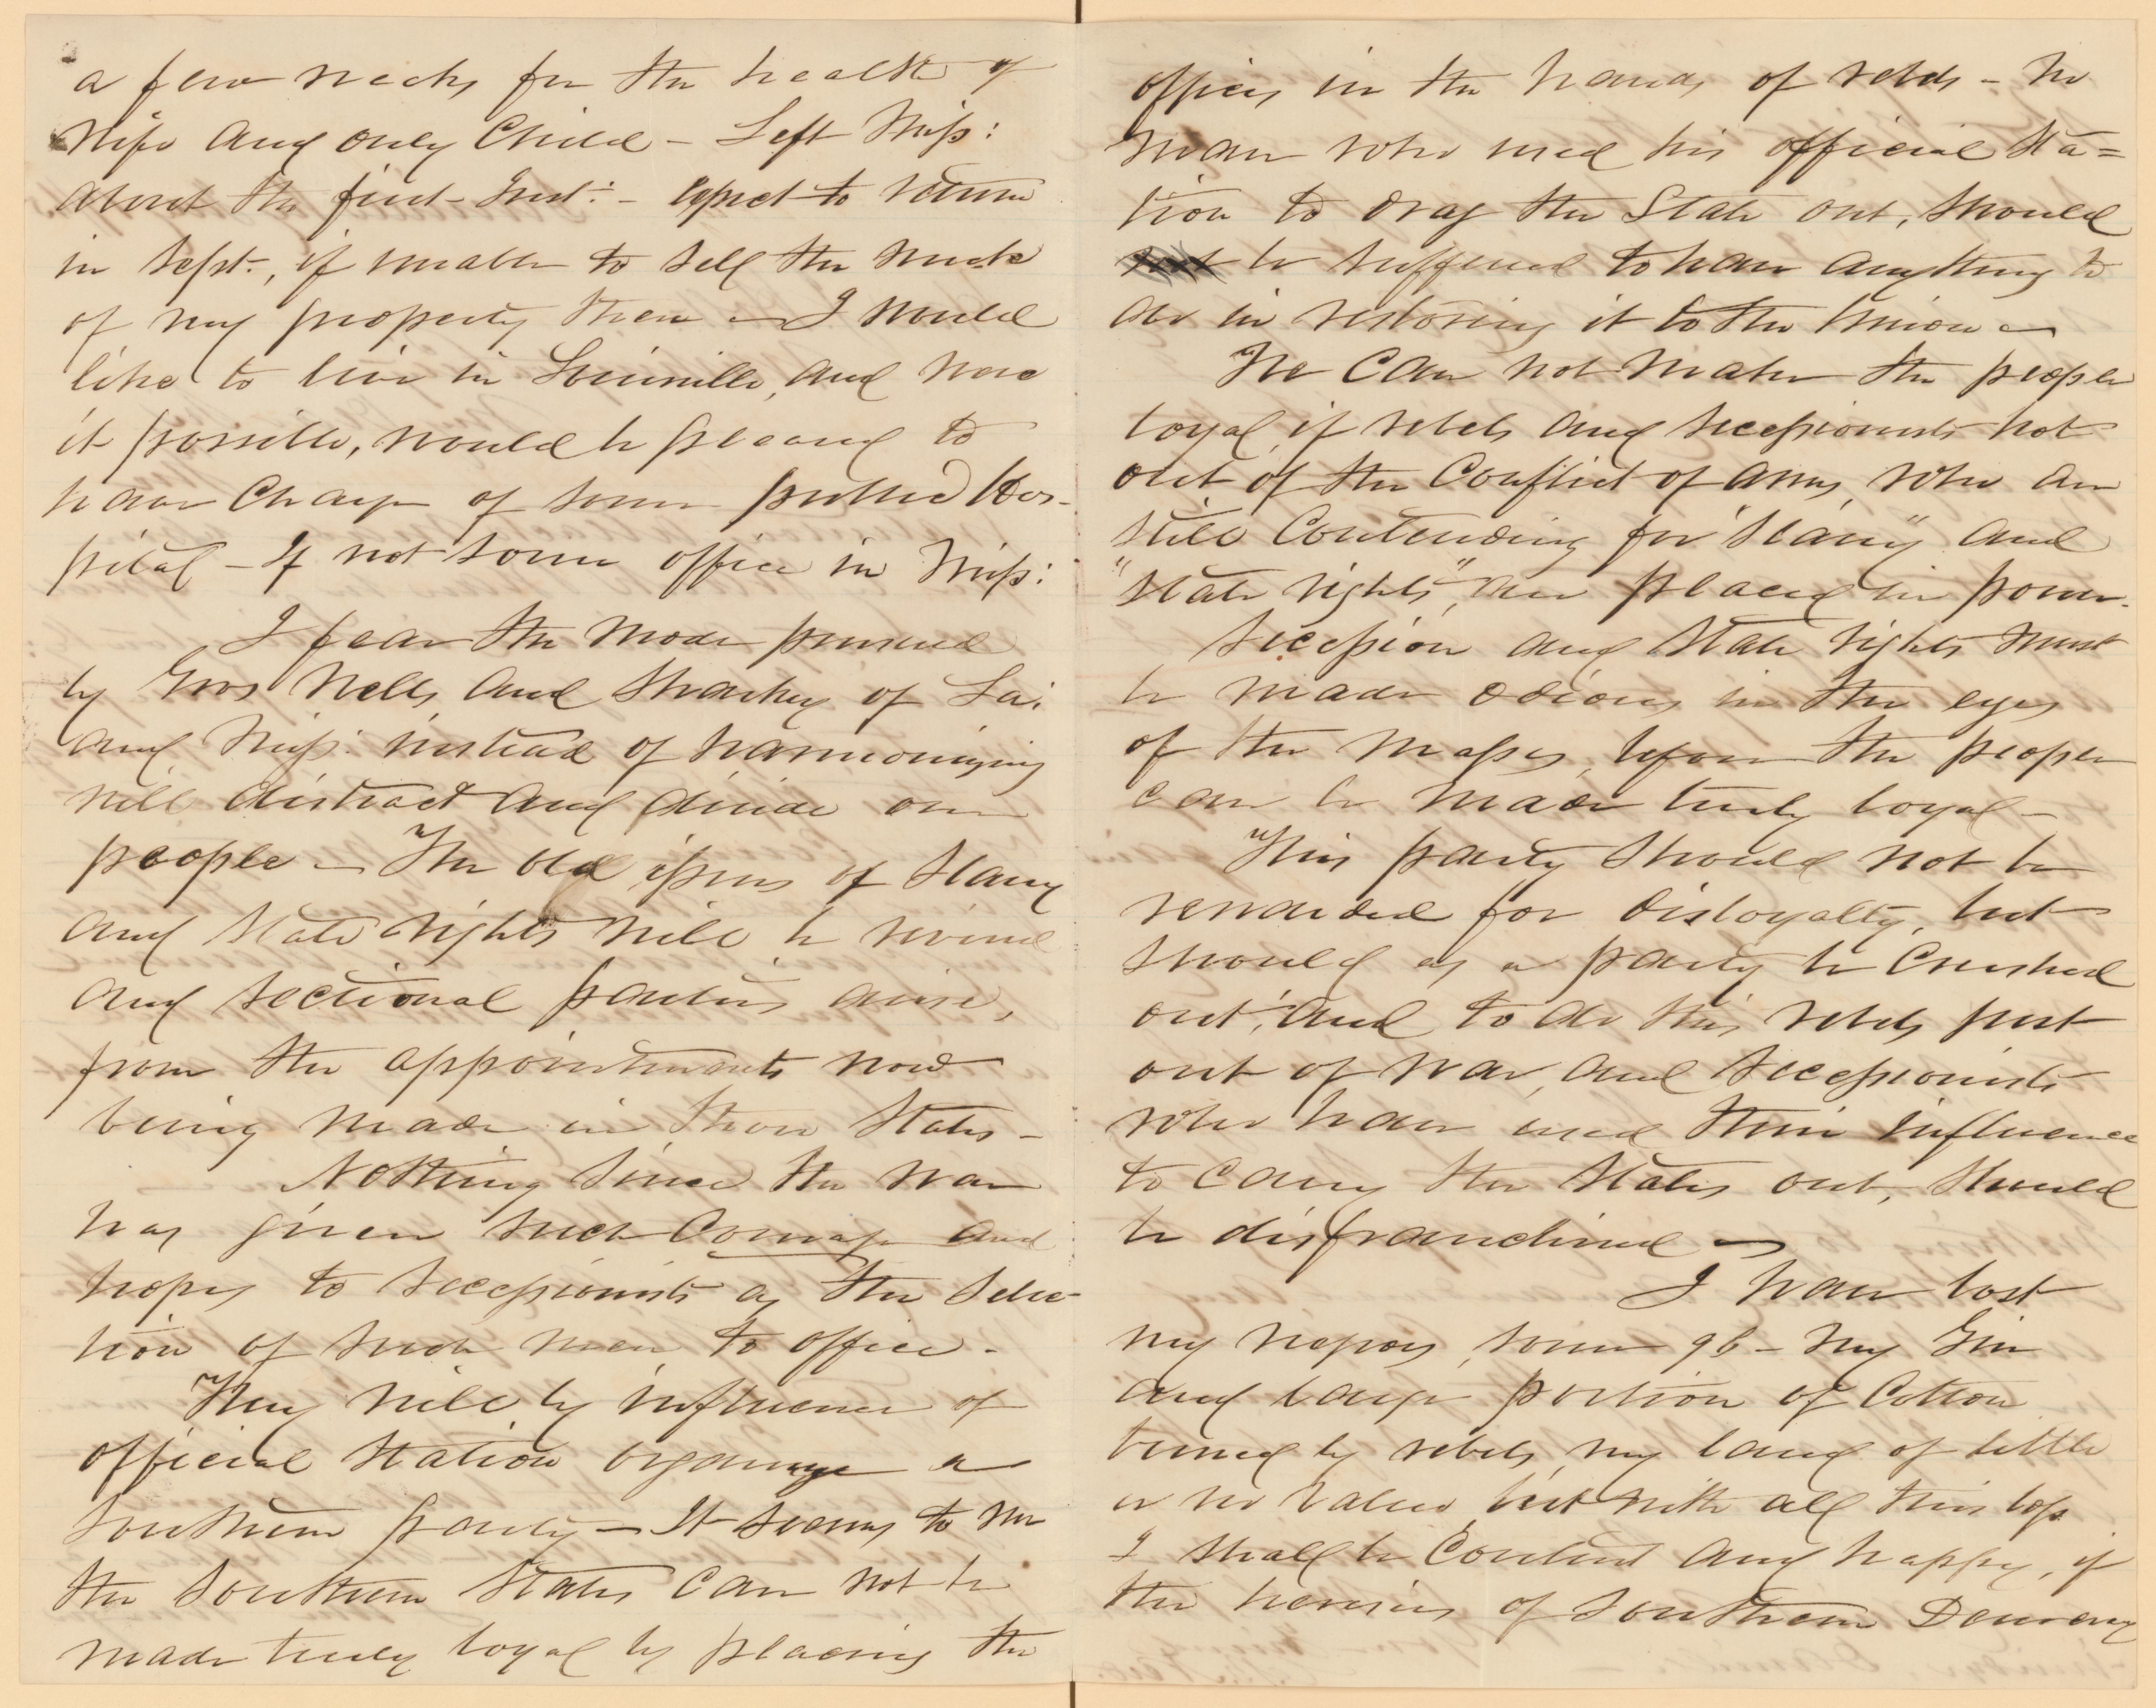 a few weeks for the health of
wife and only Child – Left Miss:
about the first Inst: – expect to return
in Sept:, if unable to sell the
of my property there – I would
like to live in Louisville, and were
it possible, would be pleased to
have Charge of some public Hos-
pital – If not some office in Miss:
I fear the mode pursued
by Govs Wells and Sharkey of La:
and Miss: instead of harmonizing
will distract and divide our
people – The old issues of Slavery
and State rights will be revived
and sectional parties arise,
from the appointments now
being made in those States –
Nothing since the war
has given such Courage and
hopes to secessionists as the selec-
tion of such men to office –
They will by influence of
official station organize a
Southern party – It seems to me
the Southern States can not be
made truly loyal by placing the
offices in the hands of rebels – No
man who used his official sta=
tion to drag the State out, should
be suffered to have anything to
do in restoring it to the Union –
We can not make the people
loyal, if rebels and secessionists hot
out of the Conflict of arms, who are
still Contending for "Slavery" and
"State rights", are placed in power.
Secession and State rights must
be made odious in the eyes
of the masses, before the people
can be made truly loyal –
This party should not be
rewarded for disloyalty, but
should as a party be Crushed
out; and to do this rebels just
out of war, and secessionists
who have used their influence
to carry the States out, should
be disfranchised –
I have lost
my negroes, some 96 – my Gin
and large portion of Cotton
burned by rebels, my land of little
or no value, but with all this loss
I shall be Content and happy, if
the heresies of Southern Democracy